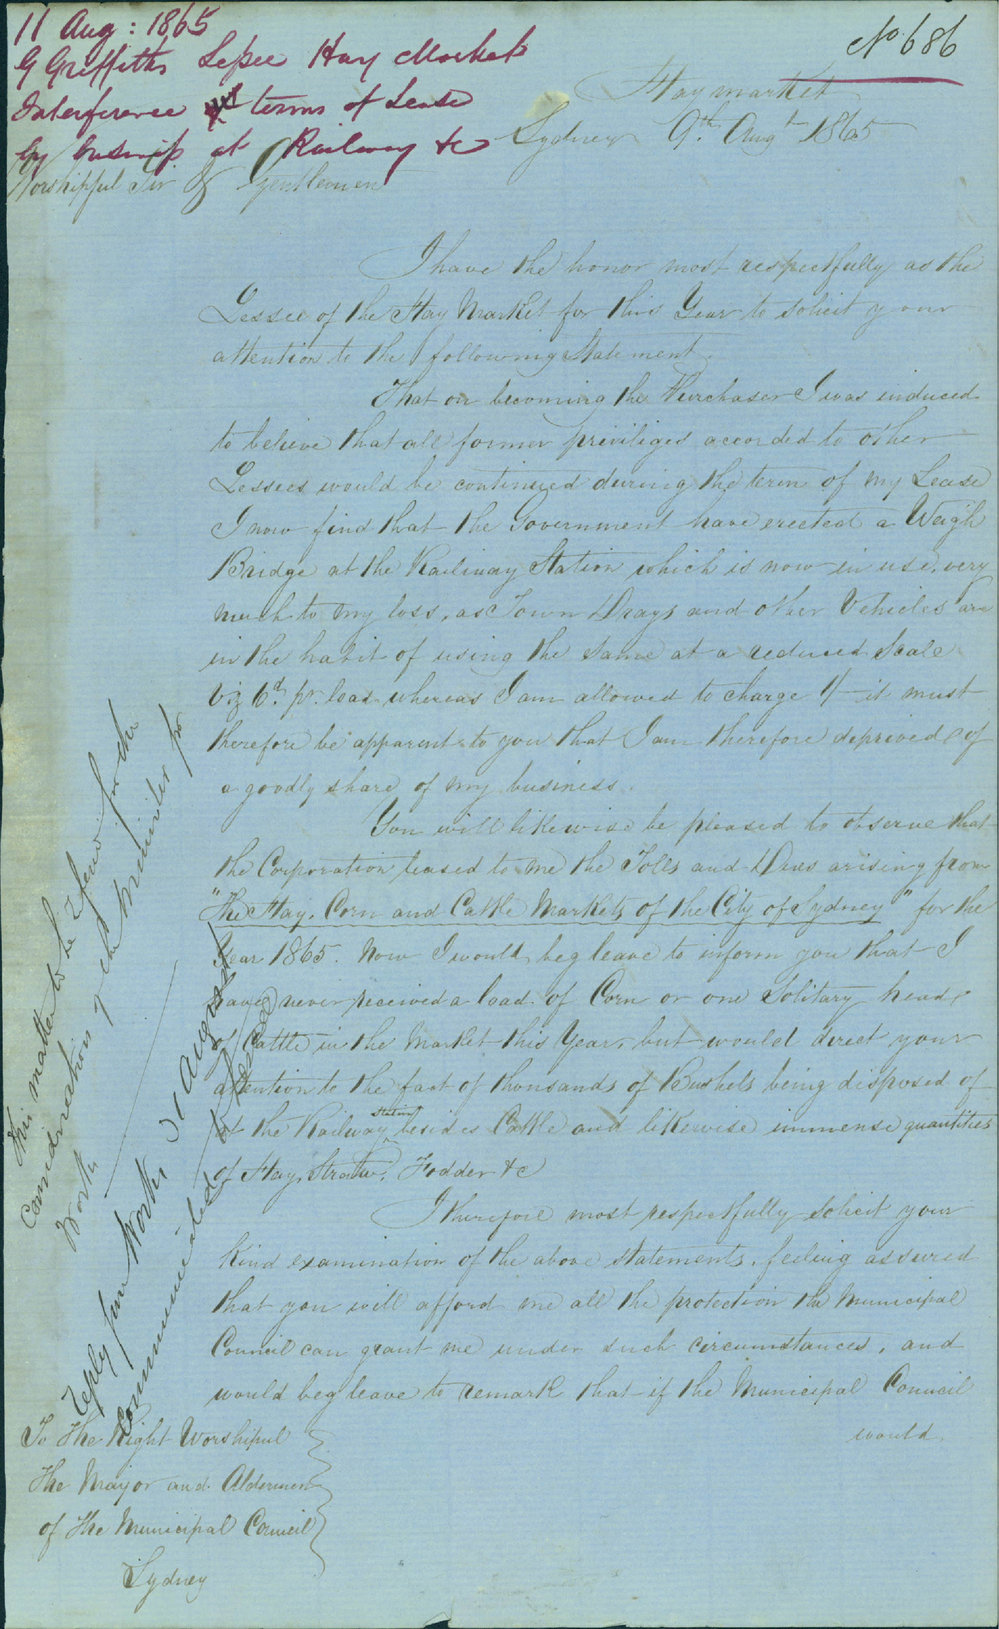 11 Aug: 1865
G Griffiths Lessee Hay Market
Interference with terms of Lease
by Weighbridge at Railway &c
No 686
Haymarket
Sydney 9th Augt 1865
Worshipful Sir & Gentlemen
I have the honor most respectfully as the
Lessee of the Hay Market for this Year to solicit your
attention to the following Statement.
That on becoming the Purchaser I was induced
to believe that all former priviliges accorded to other
Lessees would be continued during the term of my Lease
I now find that the Government have erected a Weigh
Bridge at the Railway Station which is now in use, very
much to my loss, as Town Drays and other Vehicles are
in the habit of using the same at a reduced Scale
Viz 6d. pr. load whereas I am allowed to charge 1/- it must
therefore be apparent to you that I am therefore deprived of
a goodly share of my business.
You will likewise be pleased to observe that
the Corporation leased to me the Tolls and Dues arising from
"The Hay, Corn and Cattle Markets of the City of Sydney" for the
Year 1865. Now I would beg leave to inform you that I
have never received a load of Corn or one Solitary head
of Cattle in the Market this Year, but would direct your
attention to the fact of thousands of Bushels being disposed of
at the Railway Station besides Cattle and likewise immense quantities
of Hay, Straw, Fodder &c
I therefore most respectfully solicit your
kind examination of the above statements, feeling assured
that you will afford me all the protection the Municipal
Council can grant me under such circumstances, and
would beg leave to remark that if the Municipal Council
would
To The Right Worshipful
The Mayor and Aldermen
of the Municipal Council
Sydney
This matter to be refered for the
Consideration of the Minister for
Works
Reply from Works 21 August
Communicated